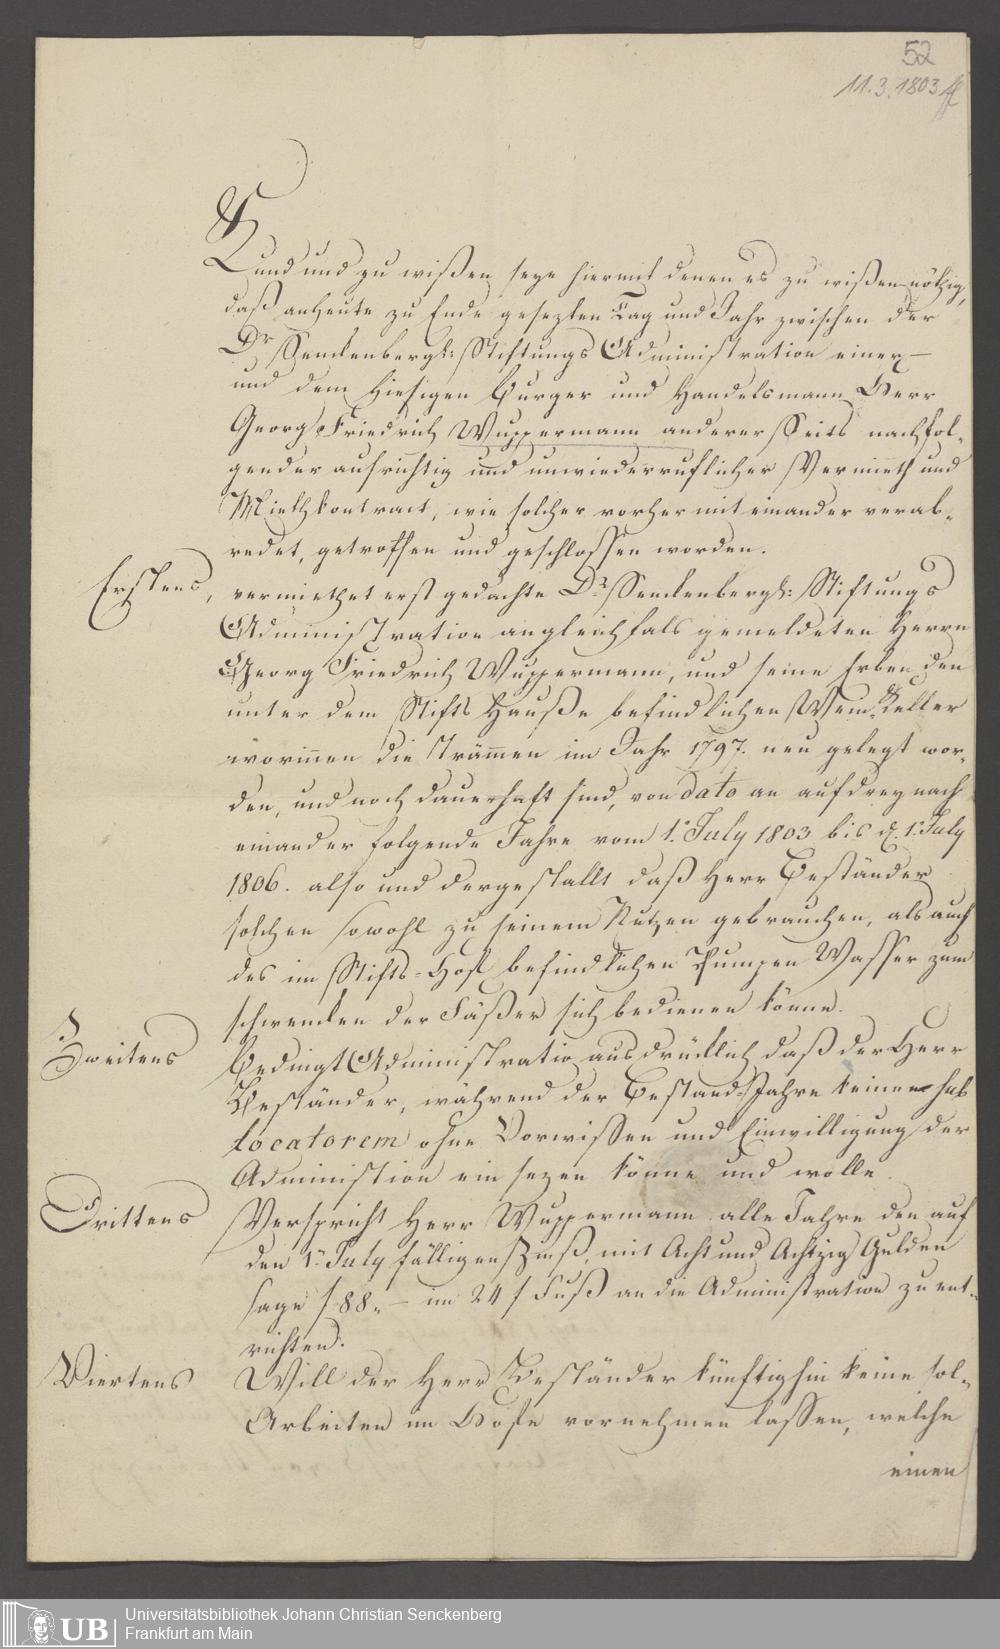 52
11.3.1803
Kund und zu wißen seye hiermit denen es zu wißen nöthig,
daß anheute zu Ende gesezten Tag und Jahr zwischen der
Dr Senckenbergk: Stiftungs Administration einer-
und dem hiesigen Burger und Handelsmann Herr
Georg Friedrich Wuppermann anderer Seits nachfol-
gender aufrichtig und unwiederruflicher Vermieth und
Miethkontract, wie solcher vorher mit einander verab-
redet, getroffen und geschlossen worden.
Erstens, vermiethet erst gedachte Dr Senckenbergk: Stiftungs
Administration angleichfals gemeldeten Herrn
Georg Friedrich Wuppermann, und seine Erben den
unter dem Stifts Hauße befindlichen Wein-Keller
worinnen die Främen im Jahr 1797. neu gelegt wor-
den, und noch dauerhaft sind, von dato an auf drey nach
einander folgende Jahre vom 1. July 1803 bis d. 1. July
1806. also und dergestallt daß Herr Beständer
solchen sowohl zu seinem Nutzen gebrauchen, als auch
des im Stifts-Hof befindlichen Pumpen Wasser zum
schwencken der Fäßer sich bedienen könne.
Zweitens Bedingt Administratio ausdrücklich daß der Herr
Beständer, während der Bestand-Jahre keinen sub
locatorem ohne Vorwissen und Einwilligung der
Administion ein sezen könne und wolle.
Drittens Verspricht Herr Wuppermann alle Jahre den auf
den 1. July fälligen Zinß, mit Acht und Achtzig Gulden
sage f 88.- im 24 f Fuß an die Administration zu ent-
richten.
Viertens Will der Herr Beständer künftighin keine sol-
Arbeiten im Hofe vornehmen lassen, welche
einen
UB
Universitätsbibliothek Johann Christian Senckenberg
Frankfurt am Main